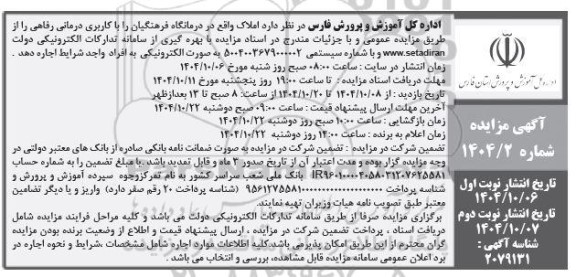 اداره کل آموزش و پرورش فارس در نظر دارد املاک واقع در درمانگاه فرهنگیان را با کاربری درمانی رفاهی را از
طریق مزایده عمومی و با جزئیات مندرج در اسناد مزایده با بهره گیری از سامانه تدارکات الکترونیکی دولت
www.setadiran و با شماره سیستمی ۵۰۰۴۰۰۳۶۷۹۰۰۰۰۰۲ به صورت الکترونیکی به افراد واجد شرایط اجاره دهد .
زمان انتشار در سایت : ساعت ۰۸:۰۰ صبح روز شنبه مورخ ۱۴۰۴/۱۰/۰۶
مهلت دریافت اسناد مزایده : تا ساعت ۱۹:۰۰ روز پنجشنبه مورخ ۱۴۰۴/۱۰/۱۱
تاریخ بازدید : از ۱۴۰۴/۱۰/۰۸ تا ۱۴۰۴/۱۰/۲۰ از ساعت: ۸ صبح تا ۱۳ بعدازظهر
آخرین مهلت ارسال پیشنهاد قیمت : ساعت ۰۹:۰۰ صبح دوشنبه ۱۴۰۴/۱۰/۲۲
زمان بازگشایی : ساعت ۱۰:۰۰ صبح روز دوشنبه ۱۴۰۴/۱۰/۲۲
زمان اعلام به برنده : ساعت ۱۴:۰۰ روز دوشنبه ۱۴۰۴/۱۰/۲۲
تضمین شرکت در مزایده : تضمین شرکت در مزایده به صورت ضمانت نامه بانکی صادره از بانک های معتبر دولتی در
وجه مزایده گزار بوده و مدت اعتبار آن از تاریخ صدور ۳ ماه و قابل تمدید باشد. یا مبلغ تضمین را به شماره حساب
بانک ملی شعب سراسر کشور به نام تمرکزوجوه سپرده آموزش و پرورش و
شناسه پرداخت (شناسه پرداخت ۲۰ رقم صفر دارد) واریز و یا دیگر تضامین
معتبر طبق تصویب نامه هیات وزیران تهیه نمایند.
برگزاری مزایده صرفا از طریق سامانه تدارکات الکترونیکی دولت می باشد و کلیه مراحل فرایند مزایده شامل
دریافت اسناد ، پرداخت تضمین شرکت در مزایده ، ارسال پیشنهاد قیمت و اطلاع از وضعیت برنده بودن مزایده
گران محترم از این طریق امکان پذیرمی باشد.کلیه اطلاعات موارد اجاره شامل مشخصات ،شرایط و نحوه اجاره در
برد اعلان عمومی سامانه مزایده قابل مشاهده، بررسی و انتخاب می باشد.
اداره کل آموزش و پرورش استان فارس
آگهی مزایده
شماره ۱۴۰۴/۲
تاریخ انتشار نوبت اول
۱۴۰۴/۱۰/۰۶
تاریخ انتشار نوبت دوم
۱۴۰۴/۱۰/۰۷
شناسه آگهی :
۲۰۷۹۱۳۱